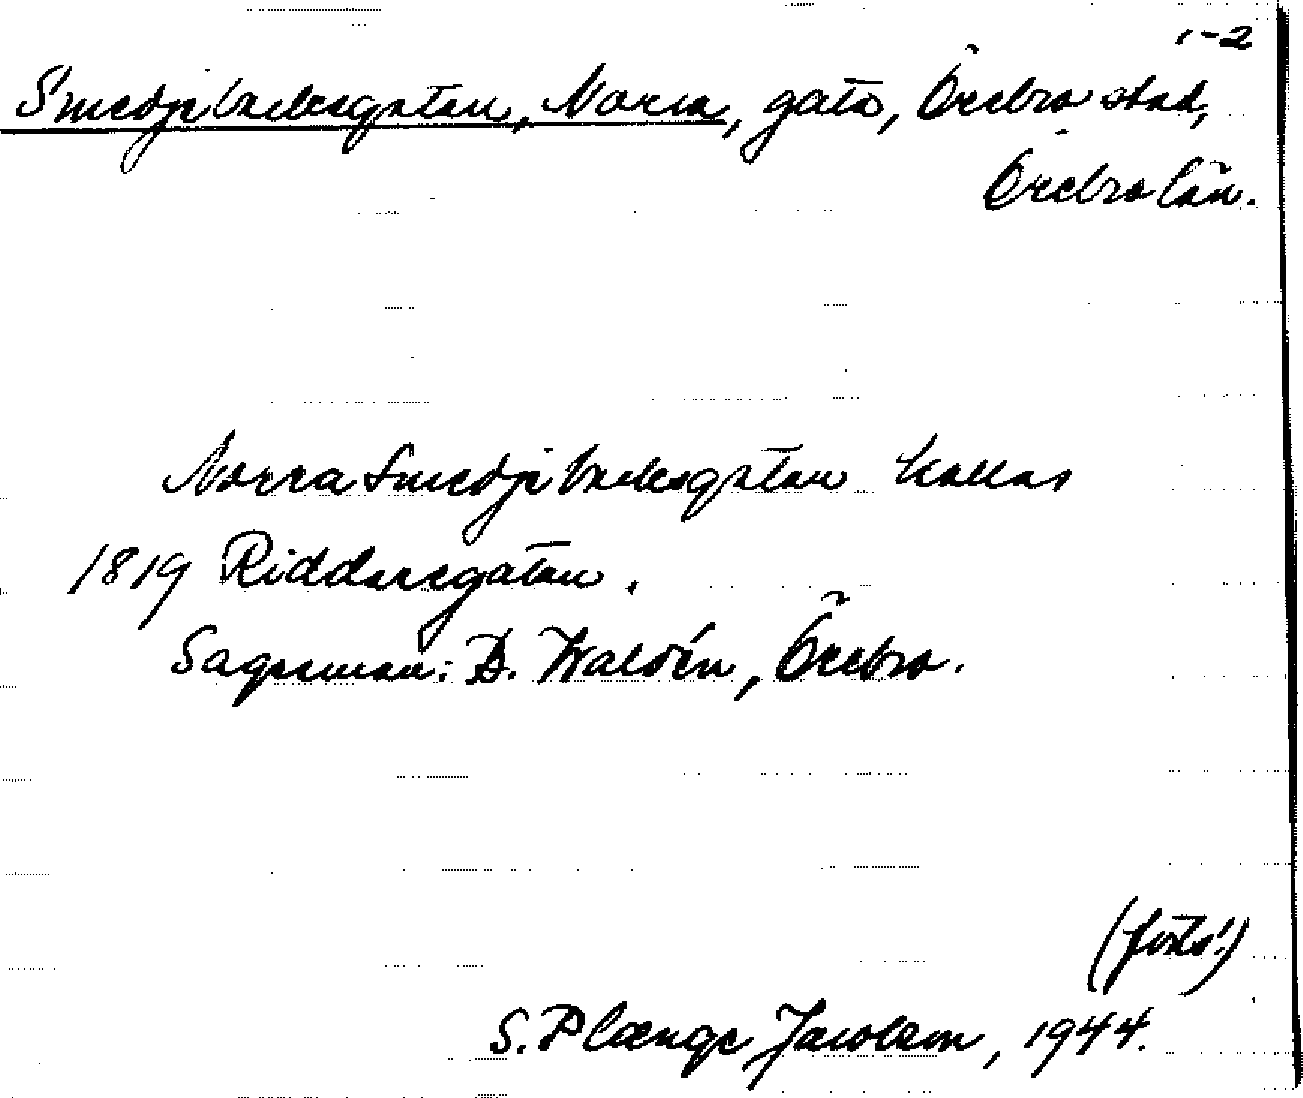 1-2
Smedjebacksgatan, Norra, gata, Örebro stad,
Örebro län.
Norra Smedjebacksgatan kallas
1819 Riddaregatan.
Sagesman: B. Waldén, Örebro.
(forts!)
S. Plænge Jacobson, 1944.